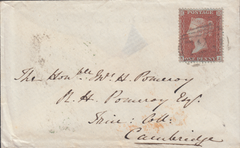 POSTAGE
ONE PENNY
The Honble Wm H. Pomeroy
R. H. Pomeroy Esq.
Trin: Coll:
Cambridge